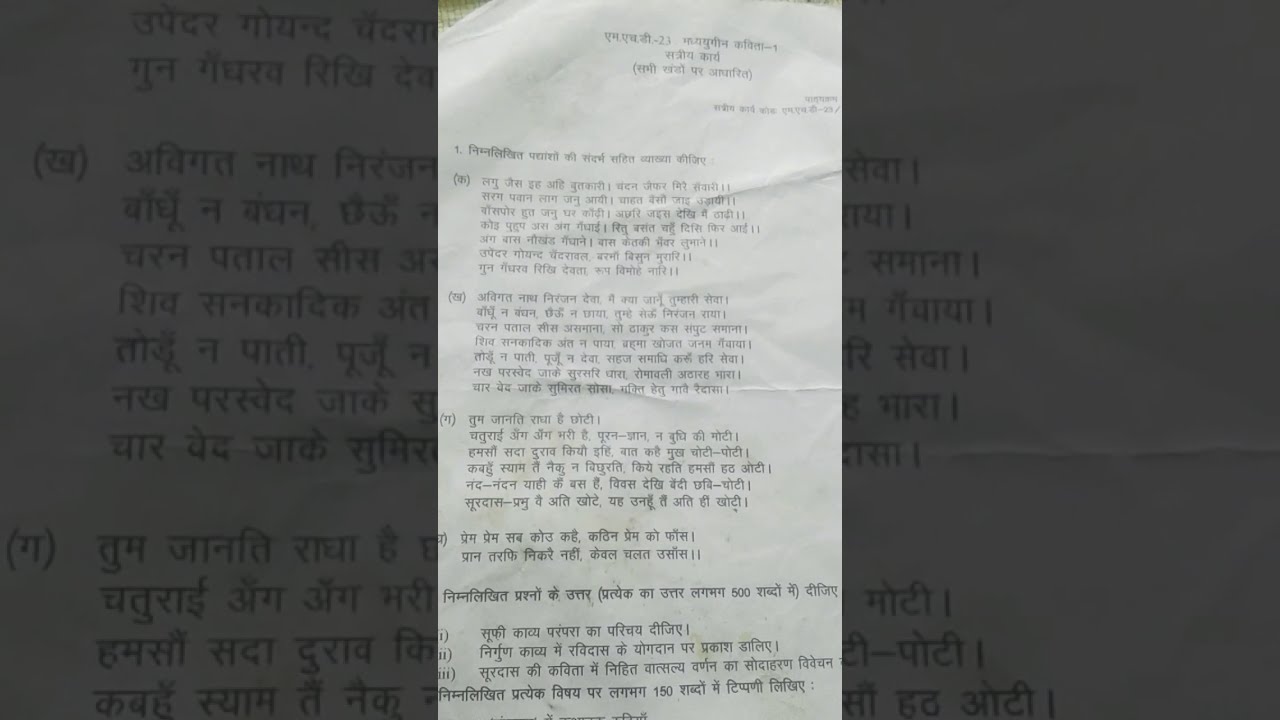 एम.एच.डी.-23 मध्ययुगीन कविता-1
सत्रीय कार्य
(सभी खंडों पर आधारित)
पाठ्यक्रम
सत्रीय कार्य कोड: एम.एच.डी-23/
1. निम्नलिखित पद्यांशों की संदर्भ सहित व्याख्या कीजिए :
(क) लगु जैस इह अहि बुतकारी। चंदन जैफर मिरे सँवारी।।
सरग पवान लाग जनु आयी। चाहत बैसौ जाइ उड़ायी।।
बाँसपोर हुत जनु घर काँढ़ी। अछरि जइस देखि मैं ठाढ़ी।।
कोइ पुहुप अस अंग गँधाई। रितु बसंत चहुँ दिसि फिर आई।।
अंग बास नौखंड गँधाने। बास केतकी भँवर लुभाने।।
उपेंदर गोयन्द चँदरावल, बरमाँ बिसुन मुरारि।
गुन गँधरव रिखि देवता, रूप विमोहे नारि।।
(ख) अविगत नाथ निरंजन देवा, मैं क्या जानूँ तुम्हारी सेवा।
बाँधूँ न बंधन, छैऊँ न छाया, तुम्हे सेऊँ निरंजन राया।
चरन पताल सीस असमाना, सो ठाकुर कस संपुट समाना।
शिव सनकादिक अंत न पाया, ब्रहमा खोजत जनम गँवाया।
तोडूँ न पाती, पूजूँ न देवा, सहज समाधि करूँ हरि सेवा।
नख परस्वेद जाके सुरसरि धारा, रोमावली अठारह भारा।
चार वेद जाके सुमिरत सोसा, भक्ति हेतु गावै रैदासा।
(ग) तुम जानति राधा है छोटी।
चतुराई अँग अँग भरी है, पूरन-ज्ञान, न बुधि की मोटी।
हमसौं सदा दुराव कियौ इहिं, बात कहै मुख चोटी-पोटी।
कबहुँ स्याम तैं नैकु न बिछुरति, किये रहति हमसौं हठ ओटी।
नंद-नंदन याही कैं बस हैं, विवस देखि बेंदी छबि-चोटी।
सूरदास-प्रभु वै अति खोटे, यह उनहूँ तैं अति हीं खोटी।
प्रेम प्रेम सब कोउ कहै, कठिन प्रेम को फाँस।
प्रान तरफि निकरै नहीं, केवल चलत उसाँस।।
निम्नलिखित प्रश्नों के उत्तर (प्रत्येक का उत्तर लगभग 500 शब्दों में) दीजिए
i) सूफी काव्य परंपरा का परिचय दीजिए।
ii) निर्गुण काव्य में रविदास के योगदान पर प्रकाश डालिए।
iii) सूरदास की कविता में निहित वात्सल्य वर्णन का सोदाहरण विवेचन
निम्नलिखित प्रत्येक विषय पर लगभग 150 शब्दों में टिप्पणी लिखिए :